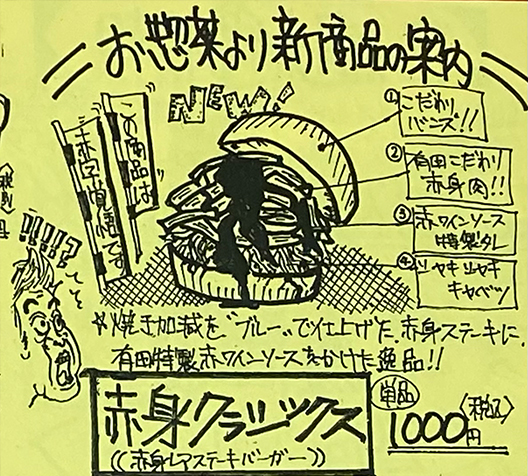 お惣菜より新商品の案内
NEW!
この商品は
赤字覚悟です
① こだわり
バンズ!!
② 有田こだわり
赤身肉!!
③ 赤ワインソース
特製タレ
④ シャキシャキ
キャベツ
!!!!!
*焼き加減を"ブルー"で仕上げた、赤身ステーキに、
有田特製赤ワインソースをかけた逸品!!
赤身クラシックス
((赤身レアステーキバーガー))
単品
1000円
〈税込〉